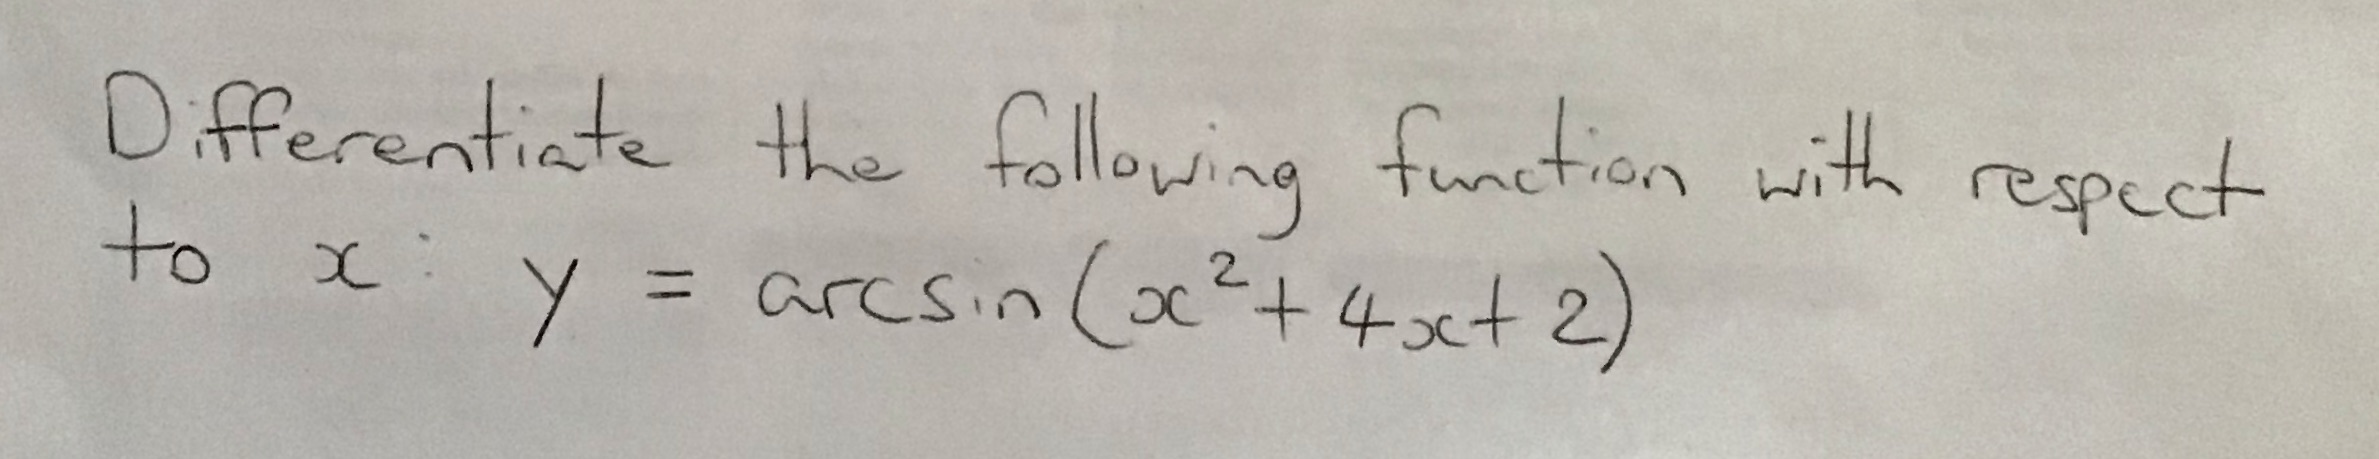 Differentiate the following function with respect
to x: y = arcsin(x²+4x+2)